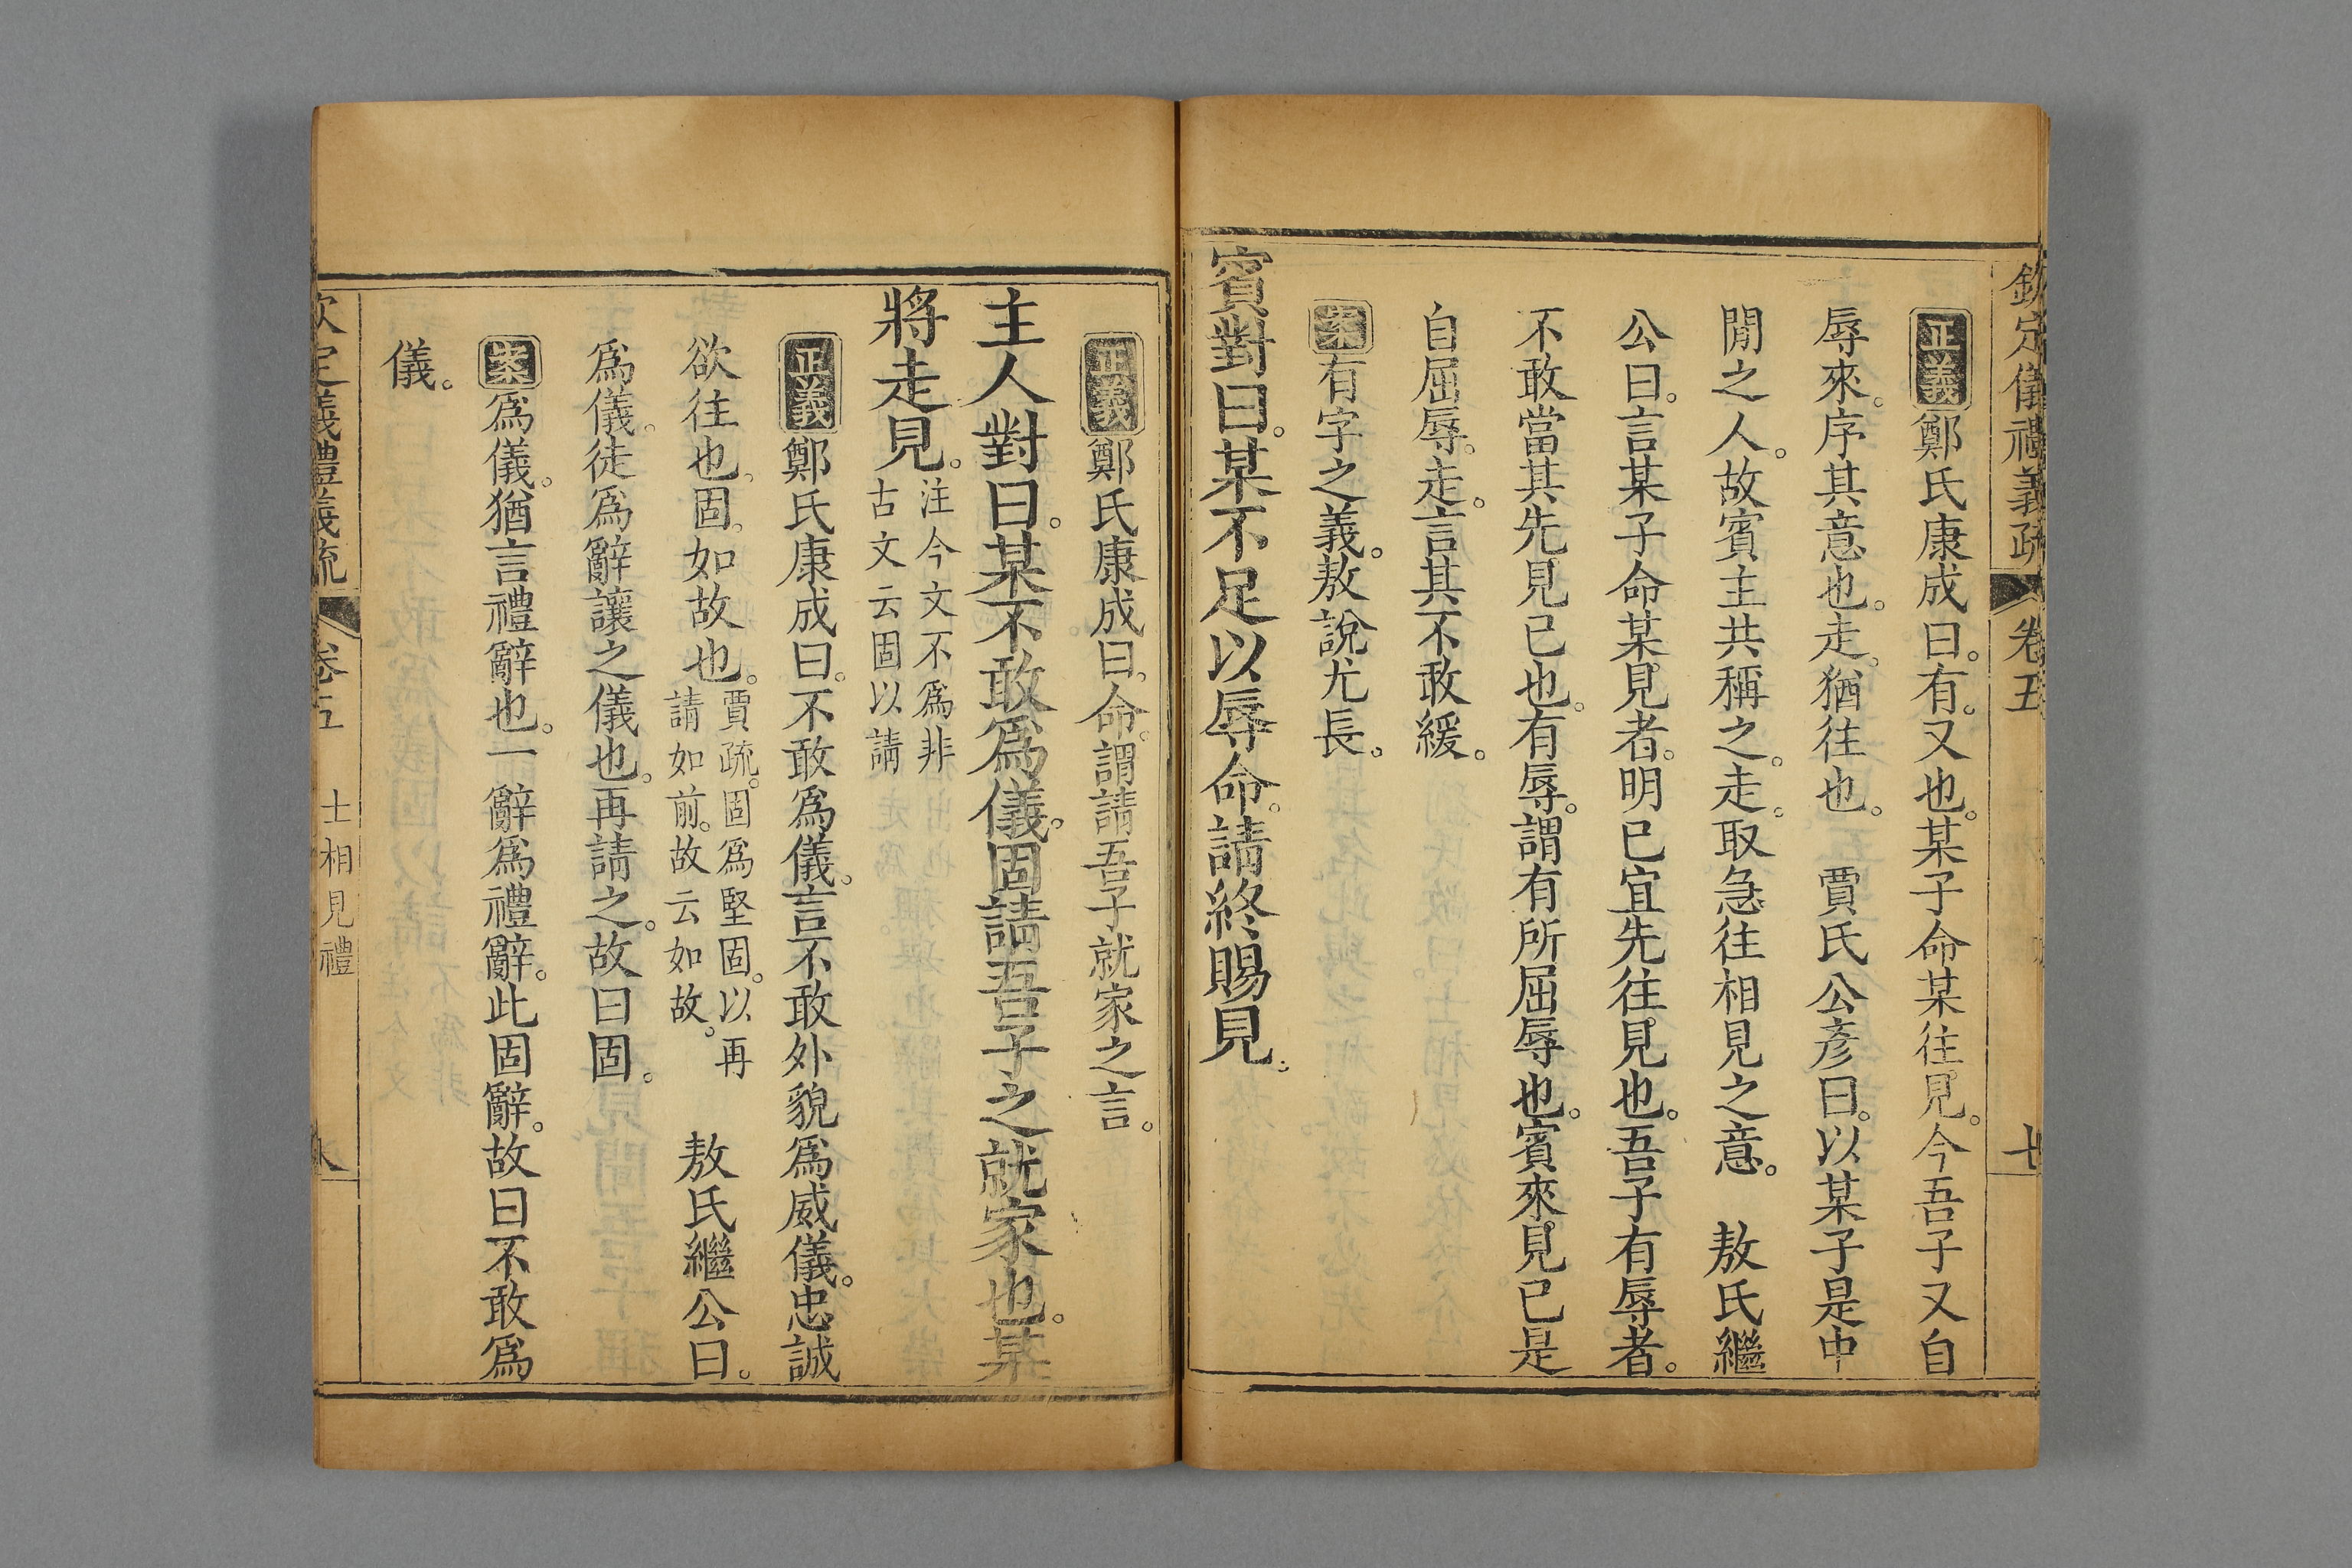 欽定儀禮義疏 卷五 七
正義鄭氏康成曰。有。又也。某子命某往見。今吾子又自
辱來。序其意也。走。猶往也。 賈氏公彥曰。以某子是中
閒之人。故賓主共稱之。走。取急往相見之意。 敖氏繼
公曰。言某子命某見者。明已宜先往見也。吾子有辱者。
不敢當其先見已也。有辱。謂有所屈辱也。賓來見已是
自屈辱。走。言其不敢緩。
案有字之義。敖說尤長。
賓對曰。某不足以辱命。請終賜見。
正義鄭氏康成曰。命。謂請吾子就家之言。
主人對曰。某不敢爲儀。固請吾子之就家也。某
將走見。注今文不爲非
古文云固以請
正義鄭氏康成曰。不敢爲儀。言不敢外貌爲威儀。忠誠
欲往也。固。如故也。賈疏。固爲堅固。以再
請如前。故云如故。 敖氏繼公曰。
爲儀。徒爲辭讓之儀也。再請之。故曰固。
案爲儀。猶言禮辭也。一辭爲禮辭。此固辭。故曰不敢爲
儀。
欽定儀禮義疏 卷五 士相見禮